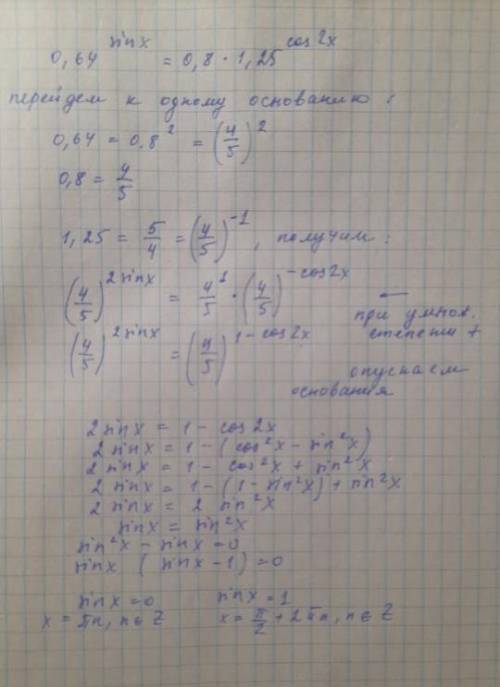 0,64^sinx = 0,8 · 1,25^cos2x
перейдем к одному основанию:
0,64 = 0,8² = (4/5)²
0,8 = 4/5
1,25 = 5/4 = (4/5)^-1, получим:
(4/5)^2sinx = 4/5^1 · (4/5)^-cos2x ← при умнож.
(4/5)^2sinx = (4/5)^1-cos2x степени +
опускаем
основания
2sinx = 1 - cos2x
2sinx = 1 - (cos²x - sin²x)
2sinx = 1 - cos²x + sin²x
2sinx = 1 - (1 - sin²x) + sin²x
2sinx = 2 sin²x
sinx = sin²x
sin²x - sinx = 0
sinx (sinx - 1) = 0
sinx = 0 sinx = 1
x = πn, n ∈ Z x = π/2 + 2πn, n ∈ Z